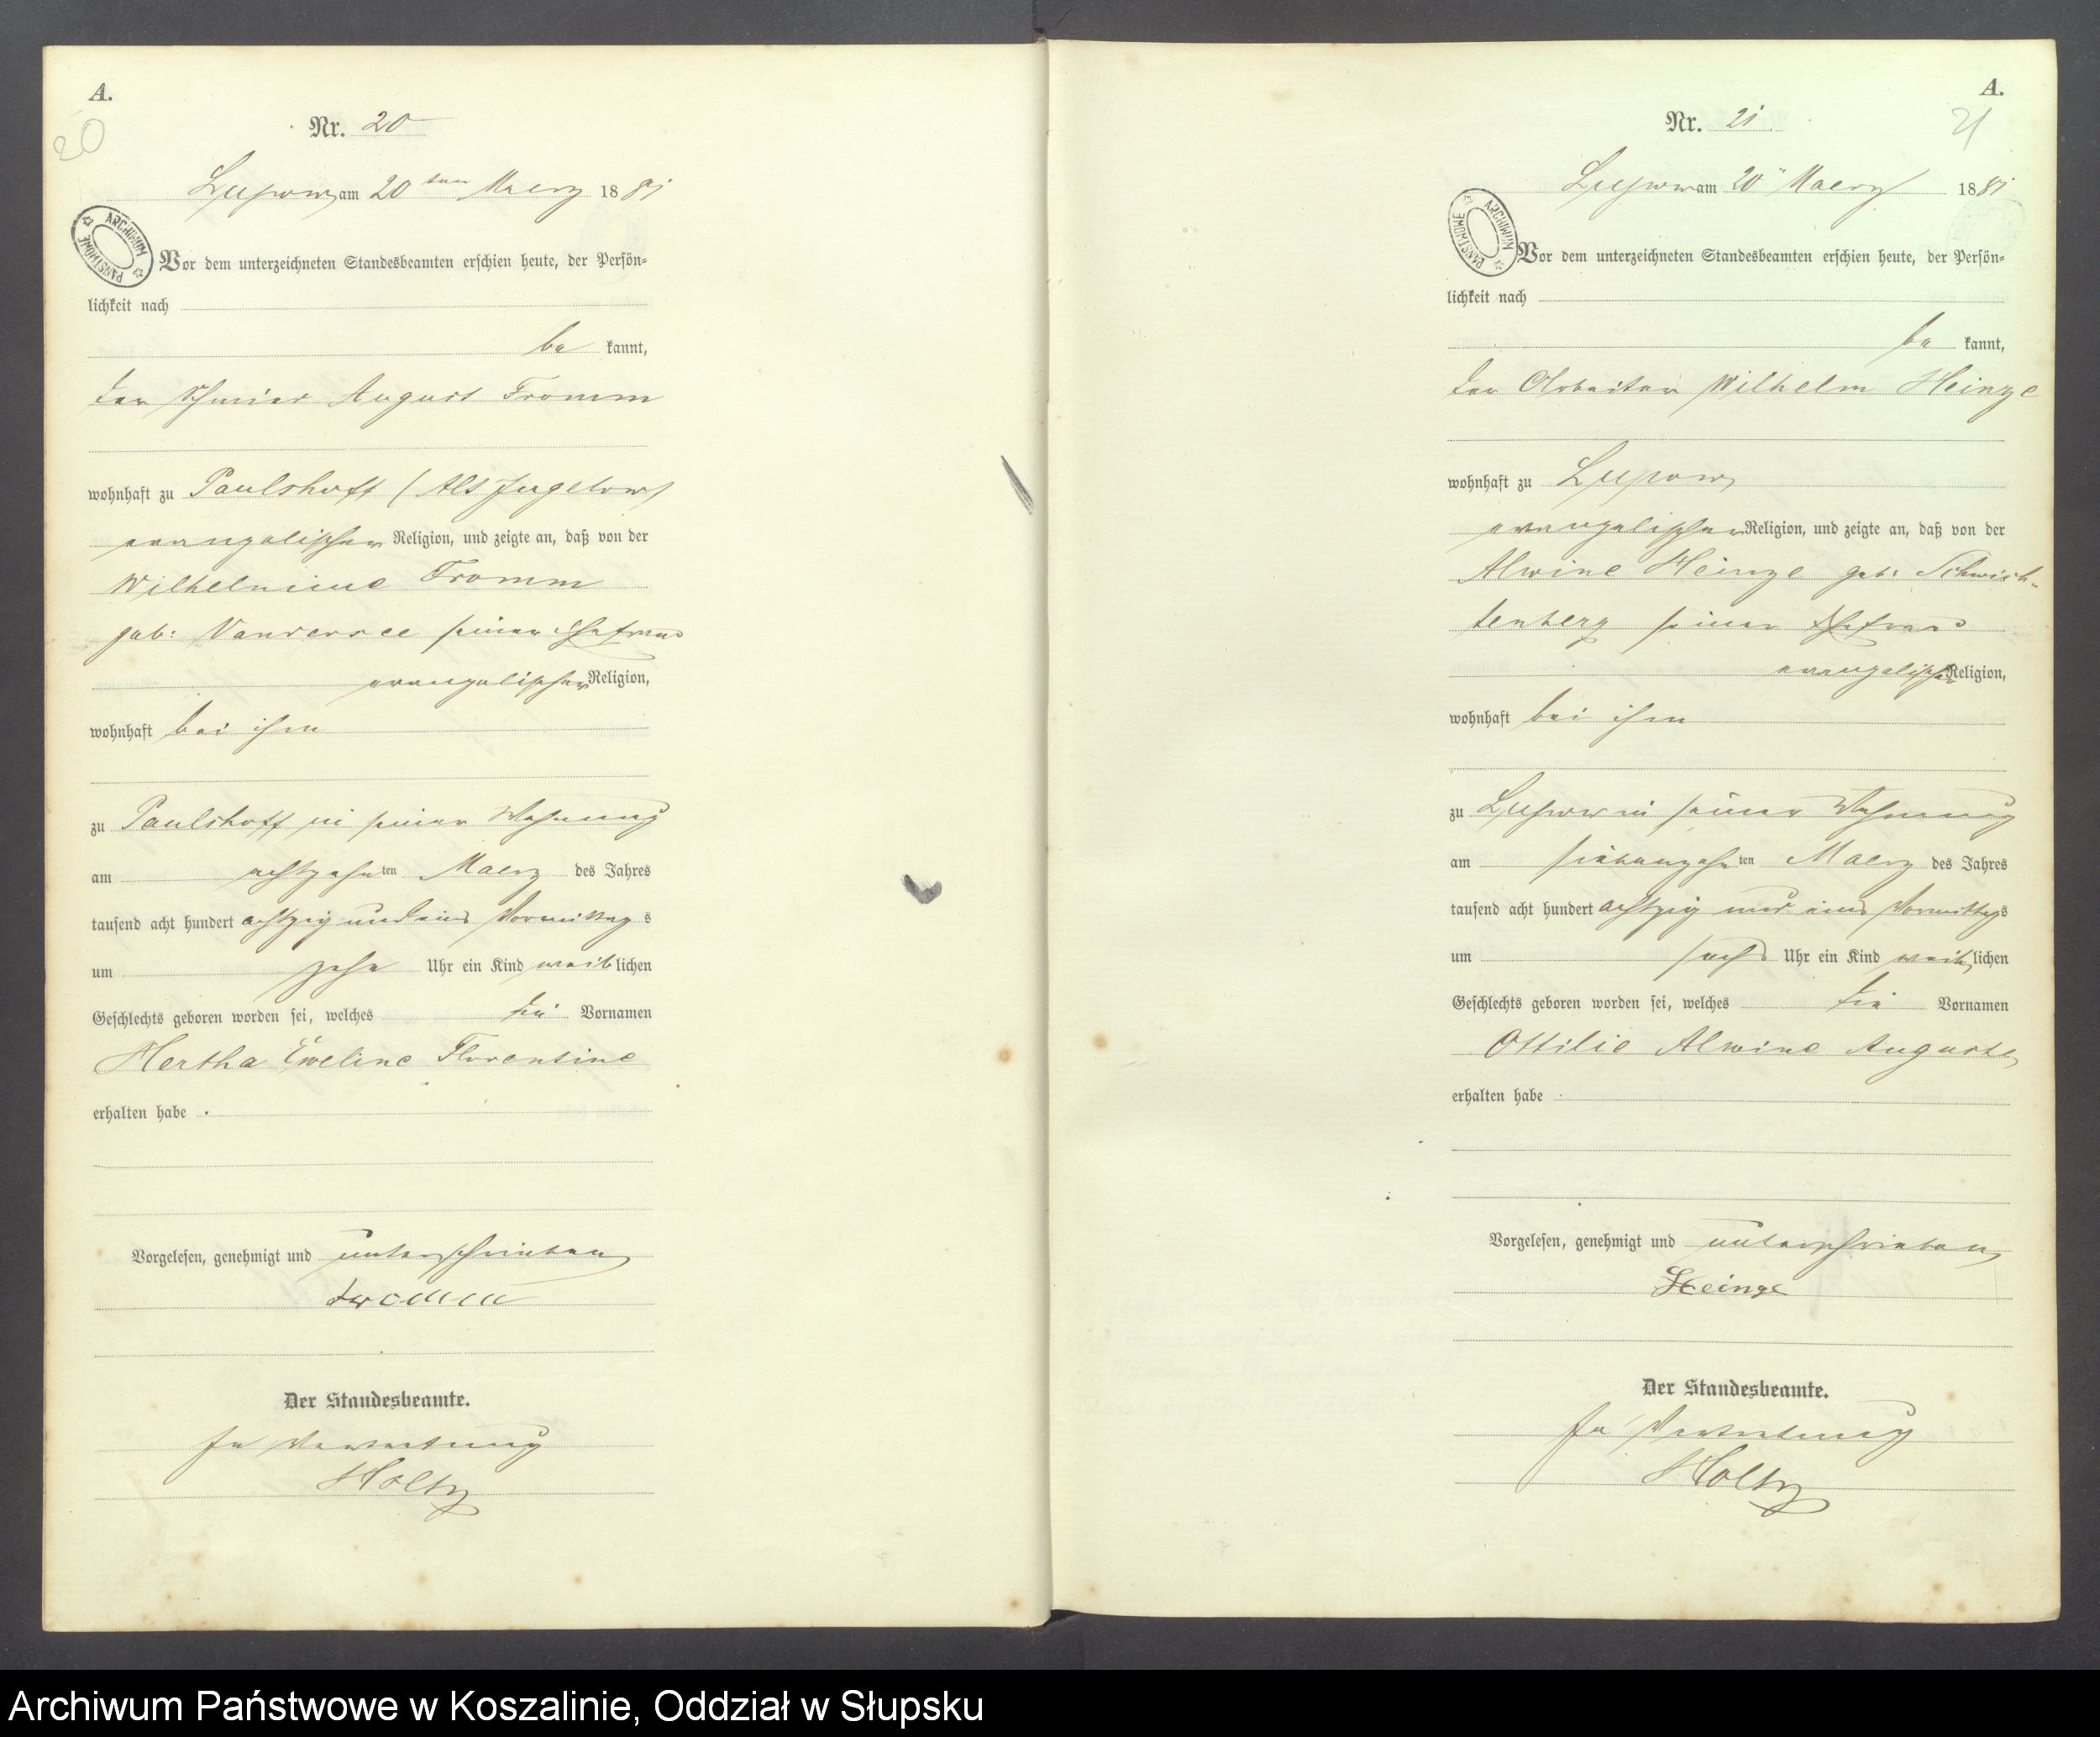 A.
20
Nr. 20
Lupow am 20ten Maerz 1881
ARCHIWUM PAŃSTWOWE
Vor dem unterzeichneten Standesbeamten erschien heute, der Persön=
lichkeit nach
be kannt,
der Schmied August Fromm
wohnhaft zu Paulshoff (Alt Jugelow)
evangelischer Religion, und zeigte an, daß von der
Wilhelmine Fromm
geb: Vandersee seiner Ehefrau
evangelischer Religion,
wohnhaft bei ihm
zu Paulshoff in seiner Wohnung
am achtzehnten Maerz des Jahres
tausend acht hundert achtzig und eins Vormittags
um zehn Uhr ein Kind weiblichen
Geschlechts geboren worden sei, welches die Vornamen
Hertha Eweline Florentine
erhalten habe .
Vorgelesen, genehmigt und unterschrieben
Fromm
Der Standesbeamte.
In Vertretung
Holtz
A.
21
Nr. 21.
Lupow am 20" Maerz 1881
ARCHIWUM PAŃSTWOWE
Vor dem unterzeichneten Standesbeamten erschien heute, der Persön=
lichkeit nach
be kannt,
der Arbeiter Wilhelm Heinze
wohnhaft zu Lupow
evangelischer Religion, und zeigte an, daß von der
Alwine Heinze geb: Schwich-
tenberg seiner Ehefrau
evangelischer Religion,
wohnhaft bei ihm
zu Lupow in seiner Wohnung
am siebenzehnten Maerz des Jahres
tausend acht hundert achtzig und eins Vormittags
um sechs Uhr ein Kind weiblichen
Geschlechts geboren worden sei, welches die Vornamen
Ottilie Alwine Auguste
erhalten habe .
Vorgelesen, genehmigt und unterschrieben
Heinze
Der Standesbeamte.
In Vertretung
Holtz
Archiwum Państwowe w Koszalinie, Oddział w Słupsku